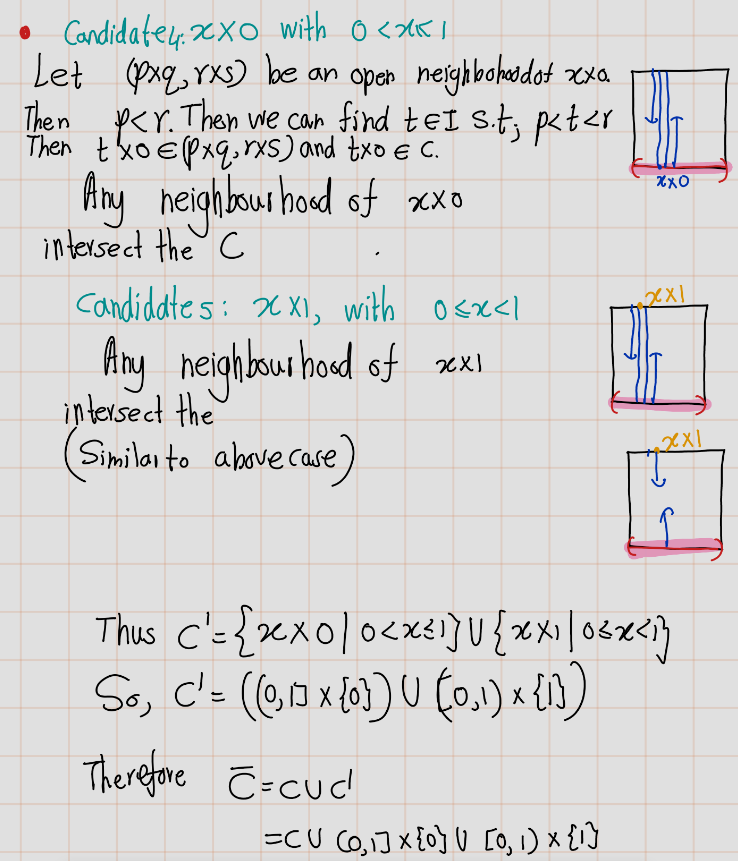 Candidate 4: x×0 with 0<x≤1
Let (p×q, r×s) be an open neighbohood of x×0.
Then p<r. Then we can find t∈I s.t; p<t<r
Then t×0∈(p×q, r×s) and t×0 ∈ C.
Any neighbourhood of x×0
intersect the C
x×0
Candidate 5: x×1, with 0≤x<1
x×1
Any neighbourhood of x×1
intersect the
(Similar to above case)
x×1
Thus C'={x×0 | 0<x≤1} ∪ {x×1 | 0≤x<1}
So, C' = ((0,1] × {0}) ∪ ([0,1) × {1})
Therefore C̅ = C ∪ C'
= C ∪ (0,1] × {0} ∪ [0,1) × {1}